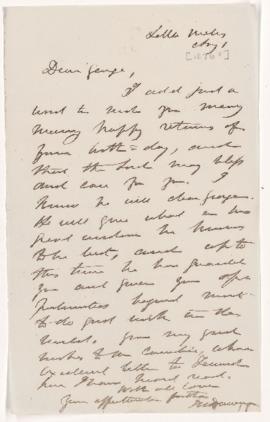 [1876?]
Dear George,
I add just a
word to wish you many
many happy returns of
your birth=day, and
that the Lord may bless
and care for you. I
know he will dear George.
He will give what in his
great wisdom he knows
to be best, and up to
this time he has guarded
you and given you opp
ortunities beyond most-
to do good with in the
world. Give my good
wishes to the
excellent letter to
have heard read.
With all love
Your affectionate father